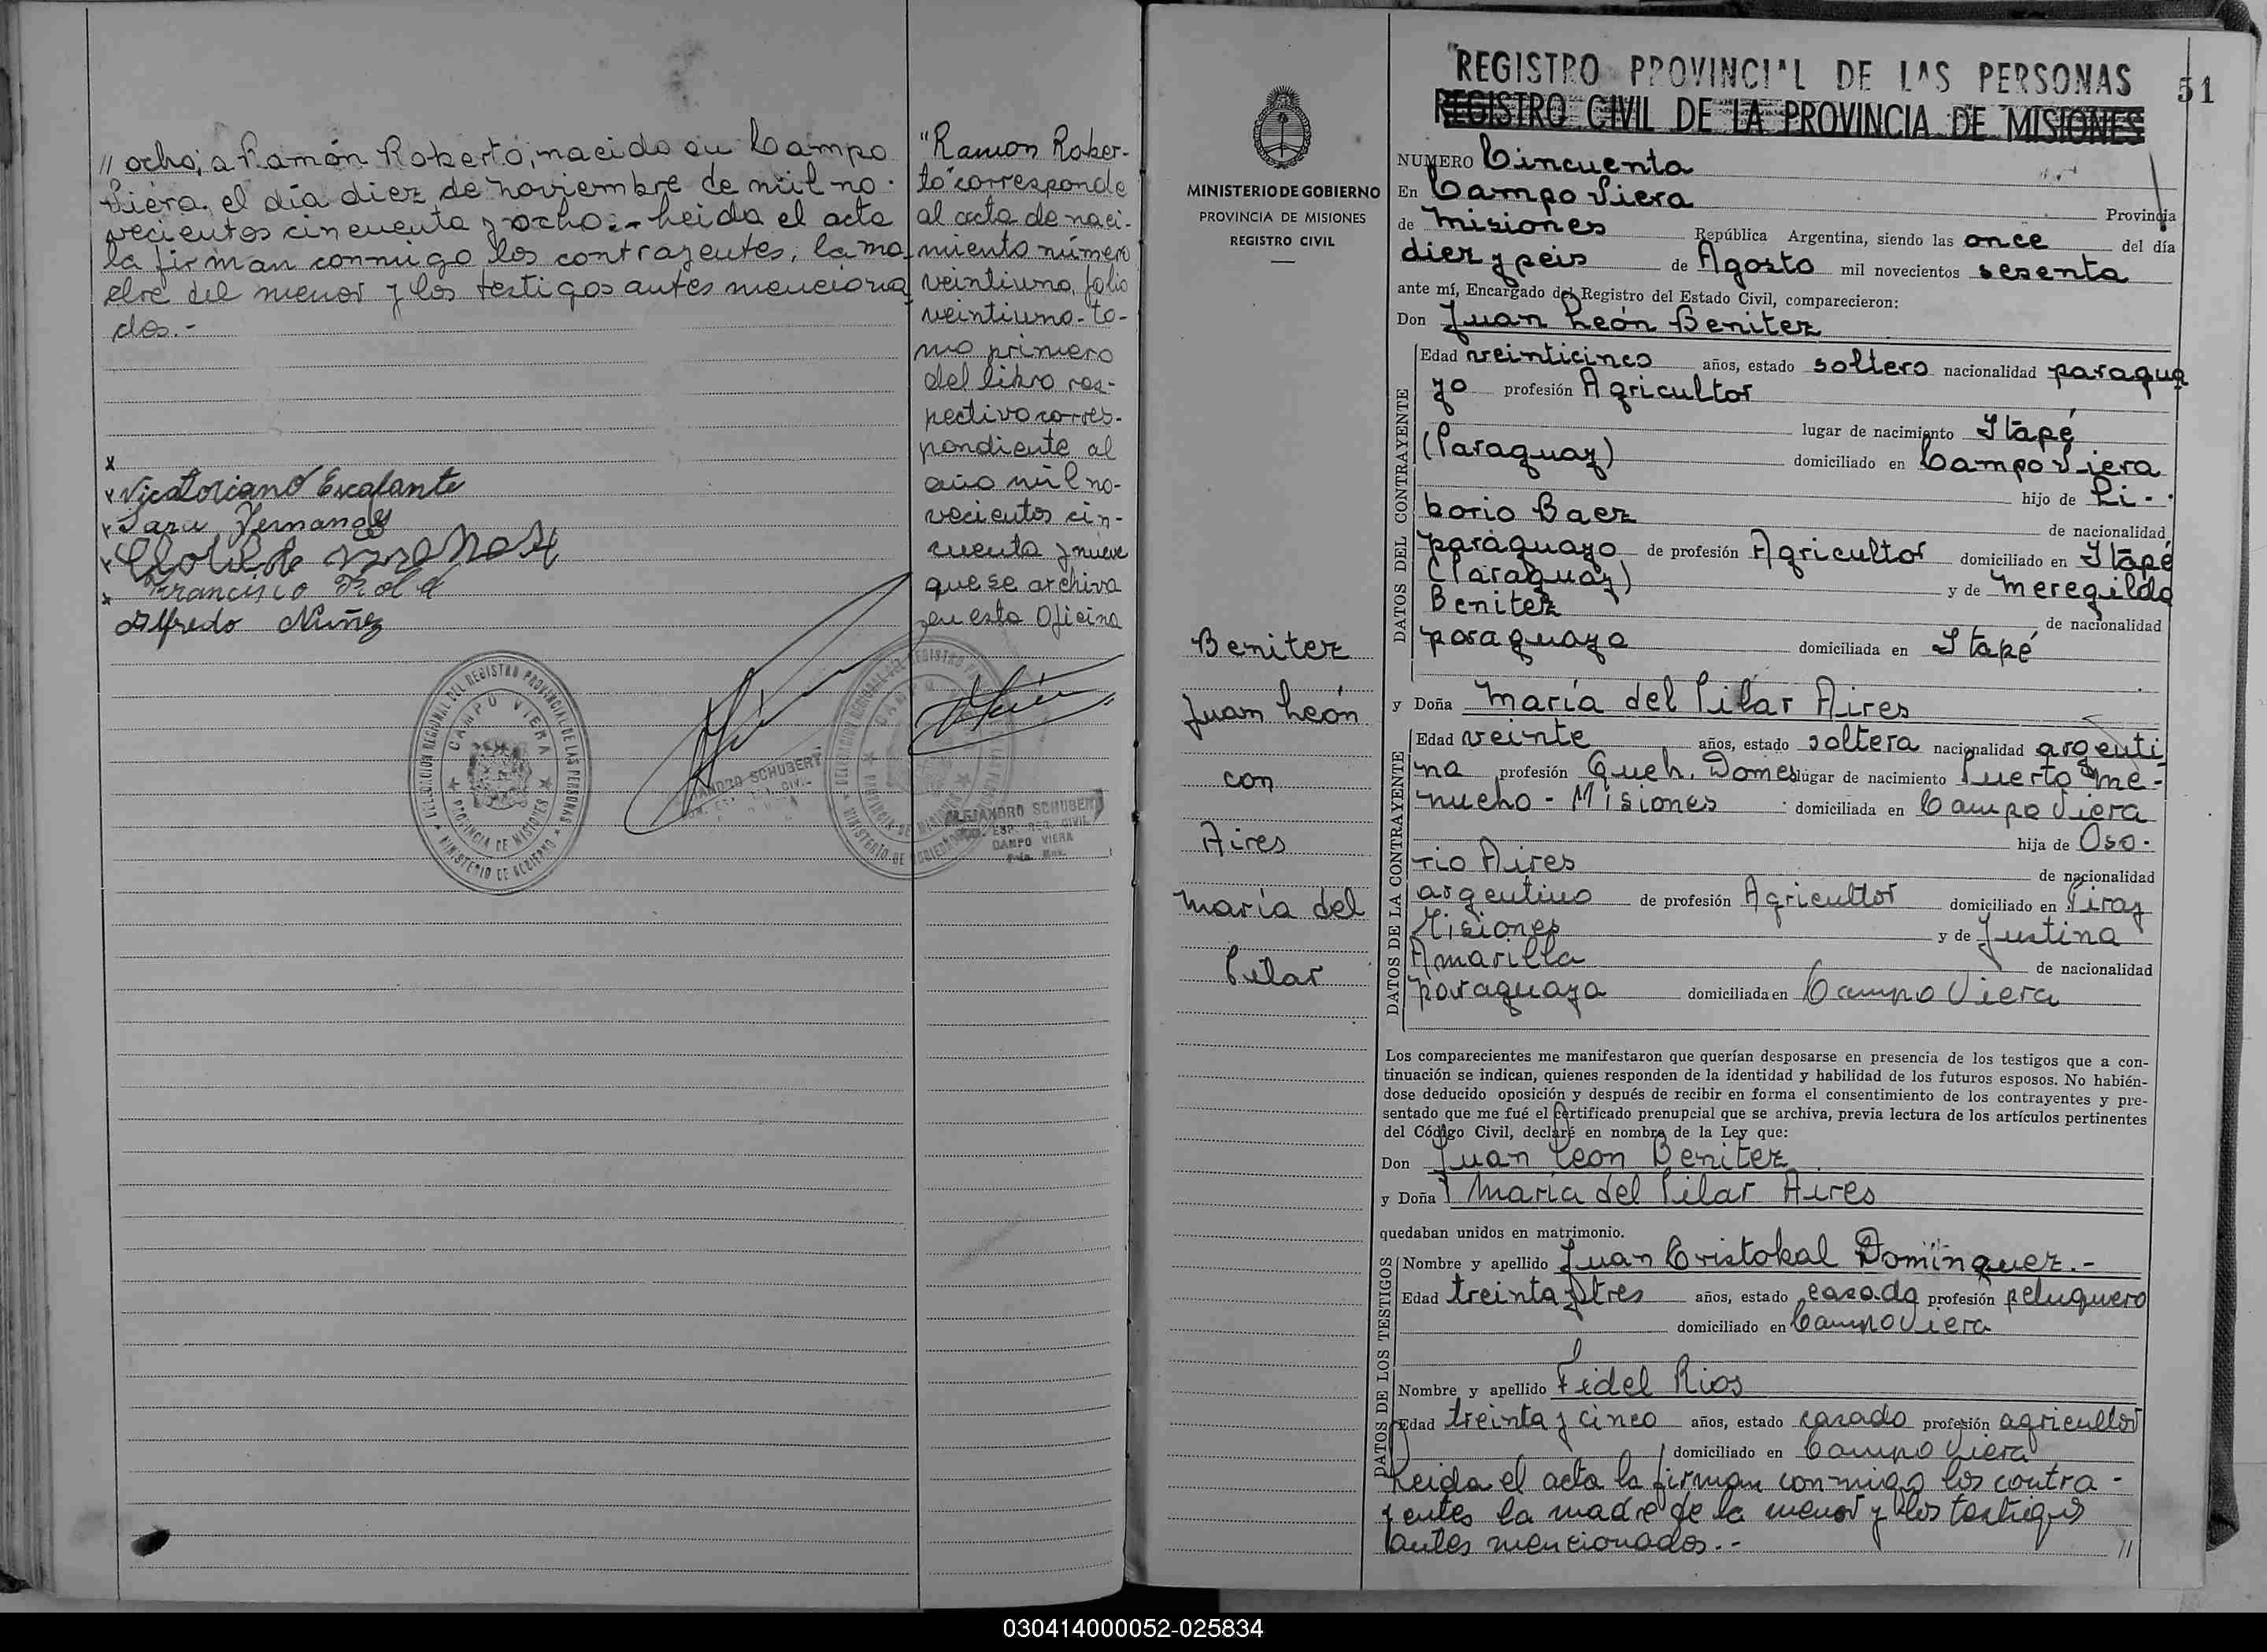 // ocho, a Ramón Roberto, nacido en Campo
Viera, el día diez de noviembre de mil no-
vecientos cincuenta y ocho.- Leida el acta
la firman conmigo los contrayentes, la ma
dre del menor y los testigos antes menciona
dos.-
x
x Vicatoriano Escalante
x Sara Fernandez
x Clotilde
x Francisco
Alfredo Nuñez
DELEGACION REGIONAL DEL REGISTRO PROVINCIAL DE LAS PERSONAS
CAMPO VIERA
PROVINCIA DE MISIONES
MINISTERIO DE GOBIERNO
"Ramon Rober-
to" corresponde
al acta de naci-
miento número
veintiuno, folio
veintiuno- to-
mo primero
del libro res-
pectivo corres-
pondiente al
año mil no-
vecientos cin-
cuenta y nueve
que se archiva
en esta Oficina
ALEJANDRO SCHUBERT
ESP. REG. CIVIL
CAMPO VIERA
Pcia. Mnes.
MINISTERIO DE GOBIERNO
PROVINCIA DE MISIONES
REGISTRO CIVIL
Benitez
Juan León
con
Aires
María del
Pilar
REGISTRO PROVINCIAL DE LAS PERSONAS
51
REGISTRO CIVIL DE LA PROVINCIA DE MISIONES
NUMERO Cincuenta
En Campo Viera Provincia
de Misiones República Argentina, siendo las once del día
diez y seis de Agosto mil novecientos sesenta
ante mí, Encargado del Registro del Estado Civil, comparecieron:
Don Juan León Benitez
DATOS DEL CONTRAYENTE
Edad veinticinco años, estado soltero nacionalidad paragua
yo profesión Agricultor
lugar de nacimiento Itapé
(Paraguay) domiciliado en Campo Viera
hijo de Li-
borio Baez de nacionalidad
paraguayo de profesión Agricultor domiciliado en Itapé
(Paraguay) y de Meregilda
Benitez de nacionalidad
paraguaya domiciliada en Itapé
y Doña María del Pilar Aires
DATOS DE LA CONTRAYENTE
Edad veinte años, estado soltera nacionalidad argenti
na profesión Queh. Domes lugar de nacimiento Puerto Me-
nucho - Misiones domiciliada en Campo Viera
hija de Oso-
rio Aires de nacionalidad
argentino de profesión Agricultor domiciliado en Piray
Misiones y de Justina
Amarilla de nacionalidad
paraguaya domiciliada en Campo Viera
Los comparecientes me manifestaron que querían desposarse en presencia de los testigos que a con-
tinuación se indican, quienes responden de la identidad y habilidad de los futuros esposos. No habién-
dose deducido oposición y después de recibir en forma el consentimiento de los contrayentes y pre-
sentado que me fué el certificado prenupcial que se archiva, previa lectura de los artículos pertinentes
del Código Civil, declaré en nombre de la Ley que:
Don Juan Leon Benitez
y Doña Maria del Pilar Aires
quedaban unidos en matrimonio.
DATOS DE LOS TESTIGOS
Nombre y apellido Juan Cristobal Domínguez.-
Edad treinta y tres años, estado casado profesión peluquero
domiciliado en Campo Viera
Nombre y apellido Fidel Rios
Edad treinta y cinco años, estado casado profesión agricultor
domiciliado en Campo Viera
Leida el acta la firman conmigo los contra-
yentes la madre de la menor y los testigos
antes mencionados.- //
030414000052-025834